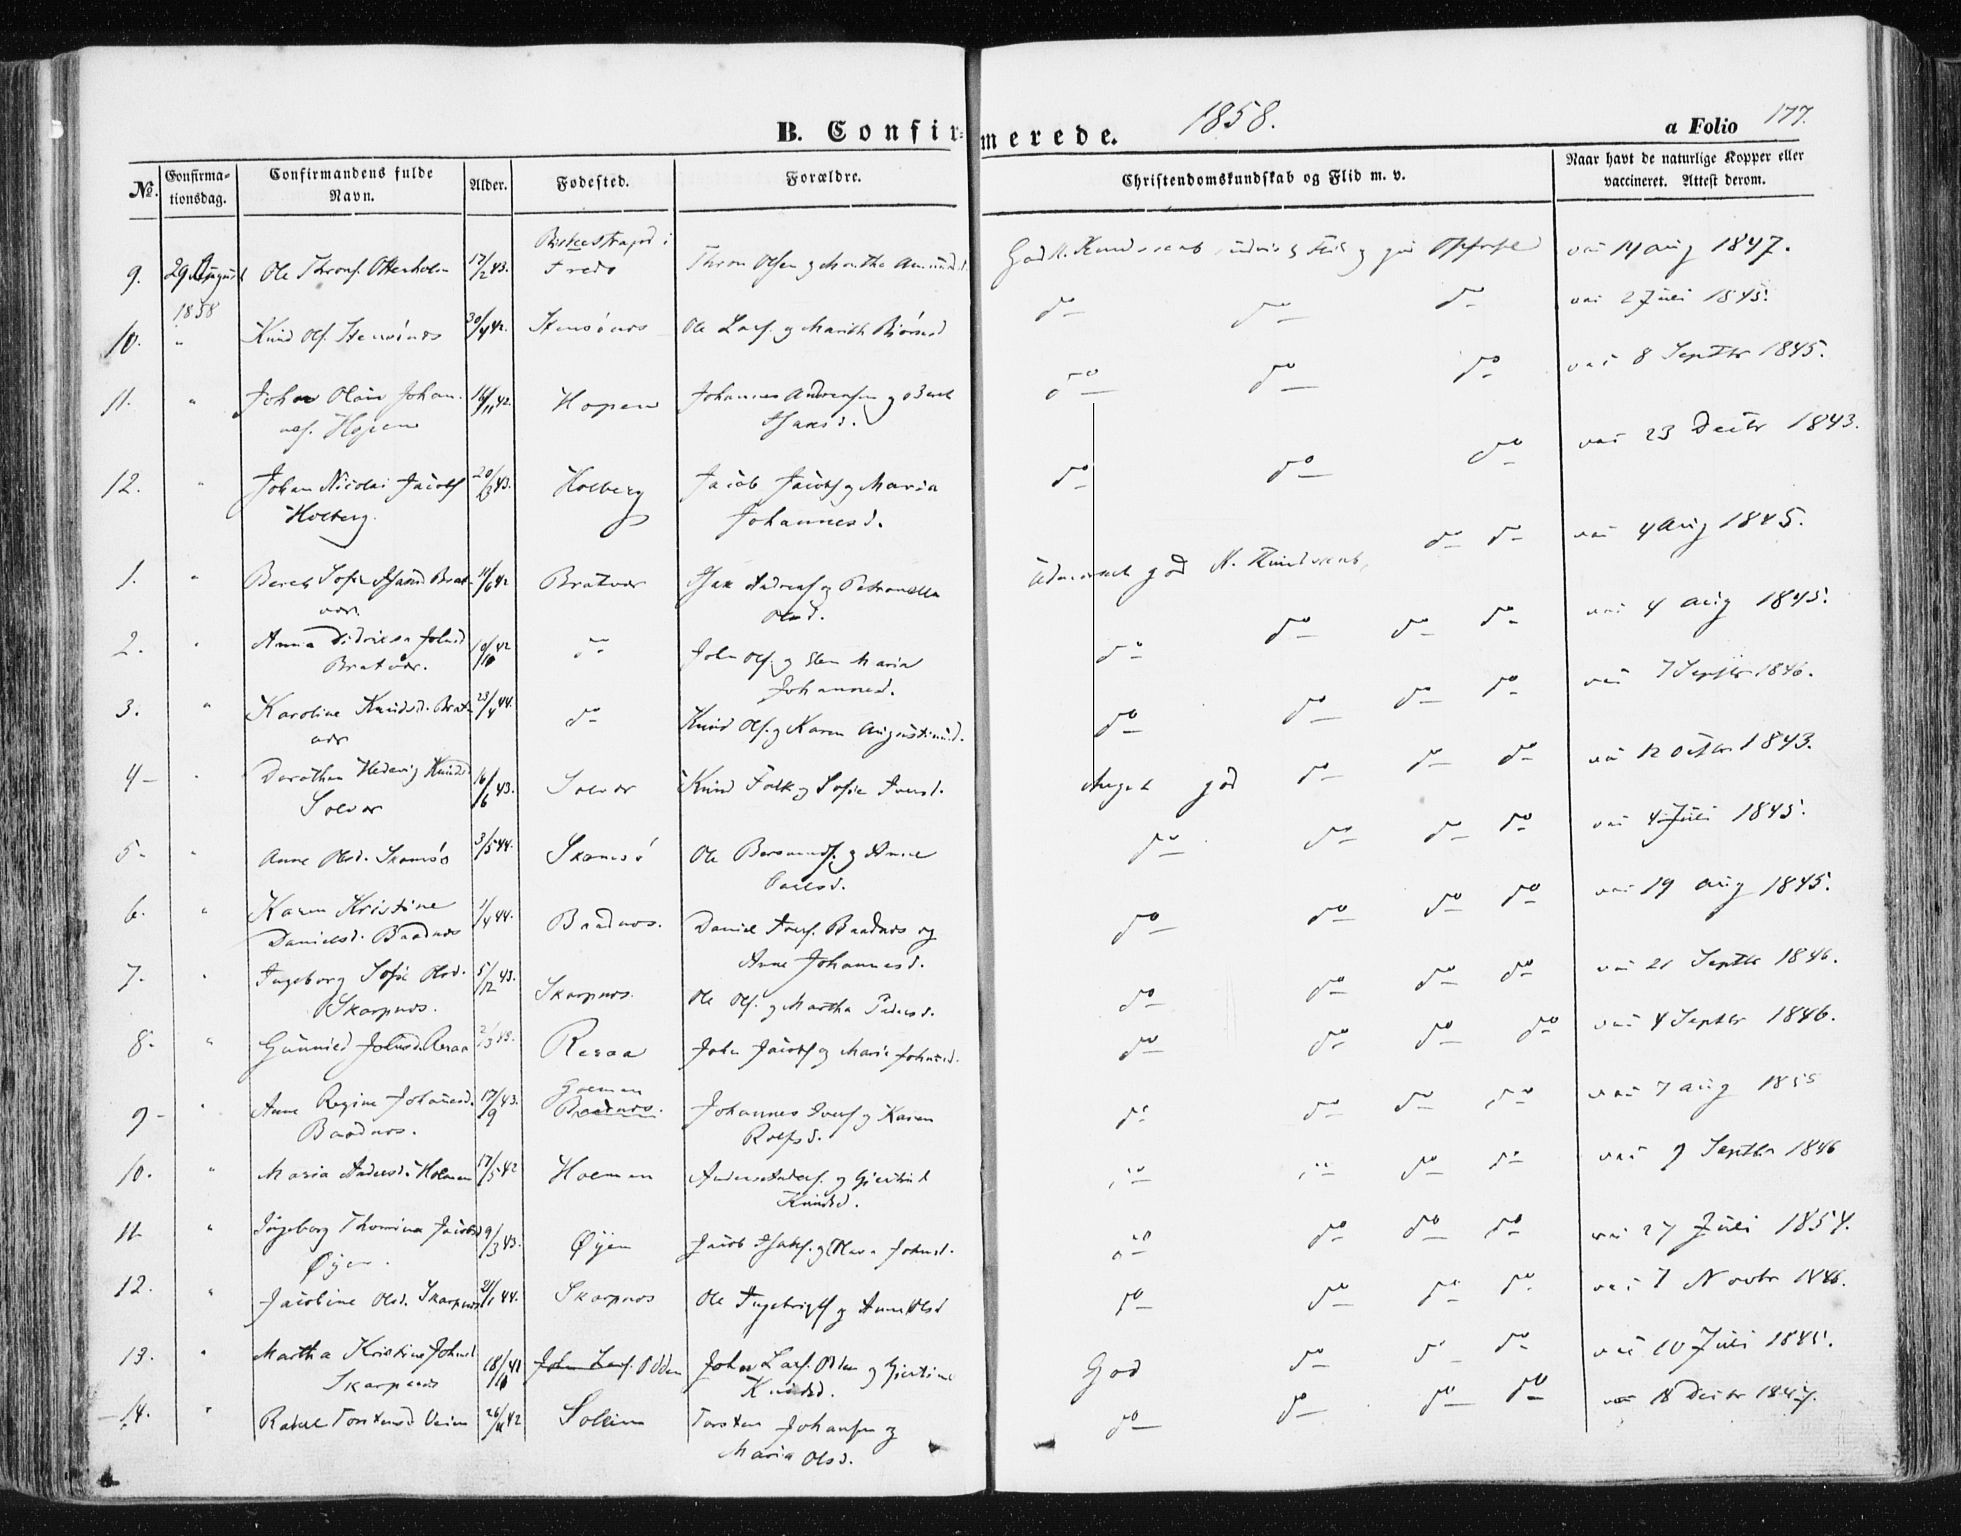 B. Confirmerede. 1858. a Folio 177.
№. Confirmationsdag. Confirmandens fulde Navn. Alder. Fødested. Forældre. Christendomskundskab og Flid m. v. Naar havt de naturlige Kopper eller vaccineret. Attest derom.
9. 29 August 1858 Ole Throns. Otterholm 17/2 43. i Fredø Thron Olsen og Marthe vac 14 Aug 1847.
10. " Knud Ols. Stensønes 30/4 42. Stensønes Ole Lars. og Marith do do do vac 2 Juli 1845.
11. " Johan Olaus Johannes. Hopen 16/11 42. Hopen Johannes Andreasen og Bereth Isaksd. do do do vac 8 Septbr 1845.
12. " Johan Nicolai Jacobs Holberg. 20/3 43. Holberg Jacob Jacobs og Maria Johannesd. do do do vac 23 Decbr 1843.
1. " Bereth Sofie Isaksd Bratvær. 11/6 42 Bratvær Isak Andreas og Petronella Olsd. Udmærket god K. Kundskab, do do vac 4 Aug 1845.
2. " Anna Didriksa Johnsd Bratvær. 10/10 42 do John Ols. og Ellen Maria Johannesd. do do do do vac 4 Aug 1845.
3. " Karoline Knudsd. Bratvær 23/4 44. do Knud Ols. og Karen Augustinusd. do do do do vac 7 Septbr 1846.
4 - " Dorothea Hedevig Knudsd Solvær 16/6 43. Solvær Knud Falk og Sofie Iversd. Meget god do do do vac 12 Octbr 1843.
5 - " Anne Olsd. Skomsø 3/5 44. Skomsø Ole og Anne Paulsd. do do do do vac 4 Juli 1845.
6. " Karen Kristine Danielsd. Baadnæs 1/4 44. Baadnæs. Daniel Ivers. Baadnæs og Anne Johannesd. do do do do vac 19 Aug 1845.
7. " Ingeborg Sofie Olsd. Skarpnæs. 5/12 43. Skarpnæs. Ole Ols. og Martha Pedersd. do do do do vac 21 Septbr 1846.
8 - " Gunnild Johnsd. Rosaa Rosaa John Jacobs og Marie Johnsd. do do do do vac 4 Septbr 1846.
9 - " Anne Regine Johannesd. Baadnæs. 17/9 43. Holman Baadnæs. Johannes Ivers og Karen Rolfsd. do do do do vac 7 Aug 1855
10. " Maria Andersd. Holman 17/5 42 Holman Anders Anders. og Gjertrud Knudsd. do do do do vac 9 Septbr 1846
11. " Ingeborg Thomina Jacobsd Øyen. 9/3 43. Øyen Jacob Isaks. og Johnsd. do do do do vac 27 Juli 1854.
12. " Jacobine Olsd. Skarpnæs 21/1 44. Skarpnæs Ole Ingebrigts og Anne Olsd do do do do vac 7 Novbr 1846.
13. " Martha Kristine Johnsd Skarpnæs 18/10 41 John Lars. Odden John Lars. Odden og Gjertine Knudsd. God do do do vac 10 Juli 1845.
14. " Rakel Torstensd Veien 26/11 42 Solem Torsten Johansen og Maria Olsd. do do do do vac 18 Decbr 1847.